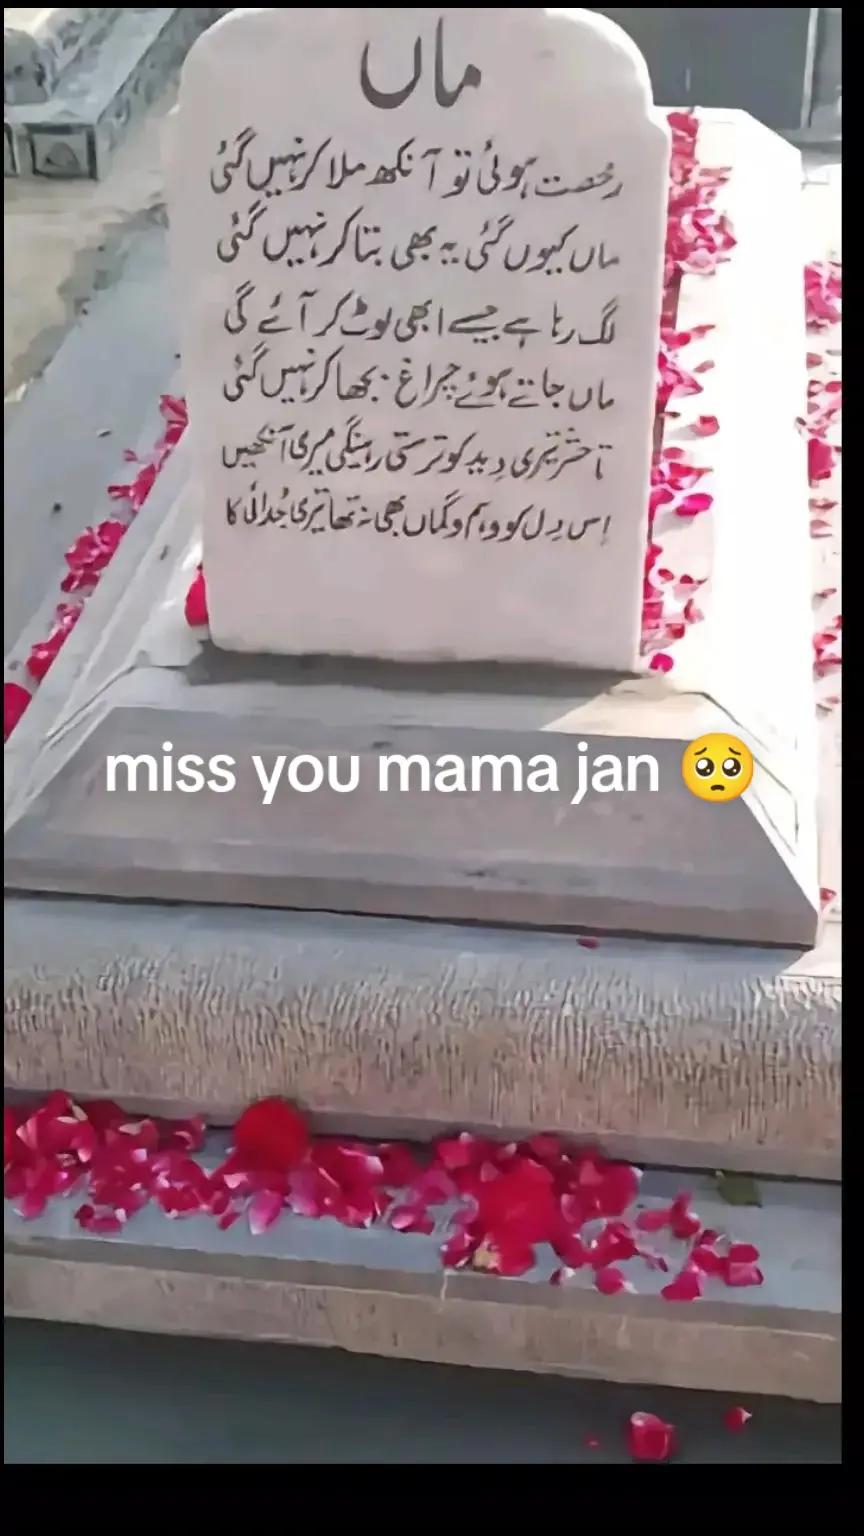 ماں
رخصت ہوئی تو آنکھ ملا کر نہیں گئی
ماں کیوں گئی یہ بھی بتا کر نہیں گئی
لگ رہا ہے جیسے ابھی لوٹ کر آئے گی
ماں جاتے ہوئے چراغ بجھا کر نہیں گئی
تا حشر تیری دِید کو ترستی رہینگی میری آنکھیں
اِس دِل کو وہم و گماں بھی نہ تھا تیری جُدائی کا
miss you mama jan 🥺